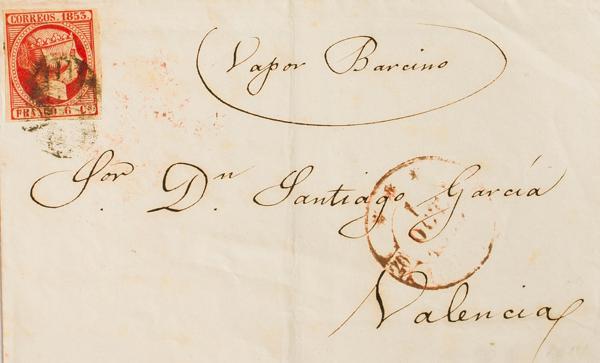 CORREOS. 1853.
FRANCO 6 Cs.
Vapor Barcino
Sor. Dn. Santiago García
Valencia